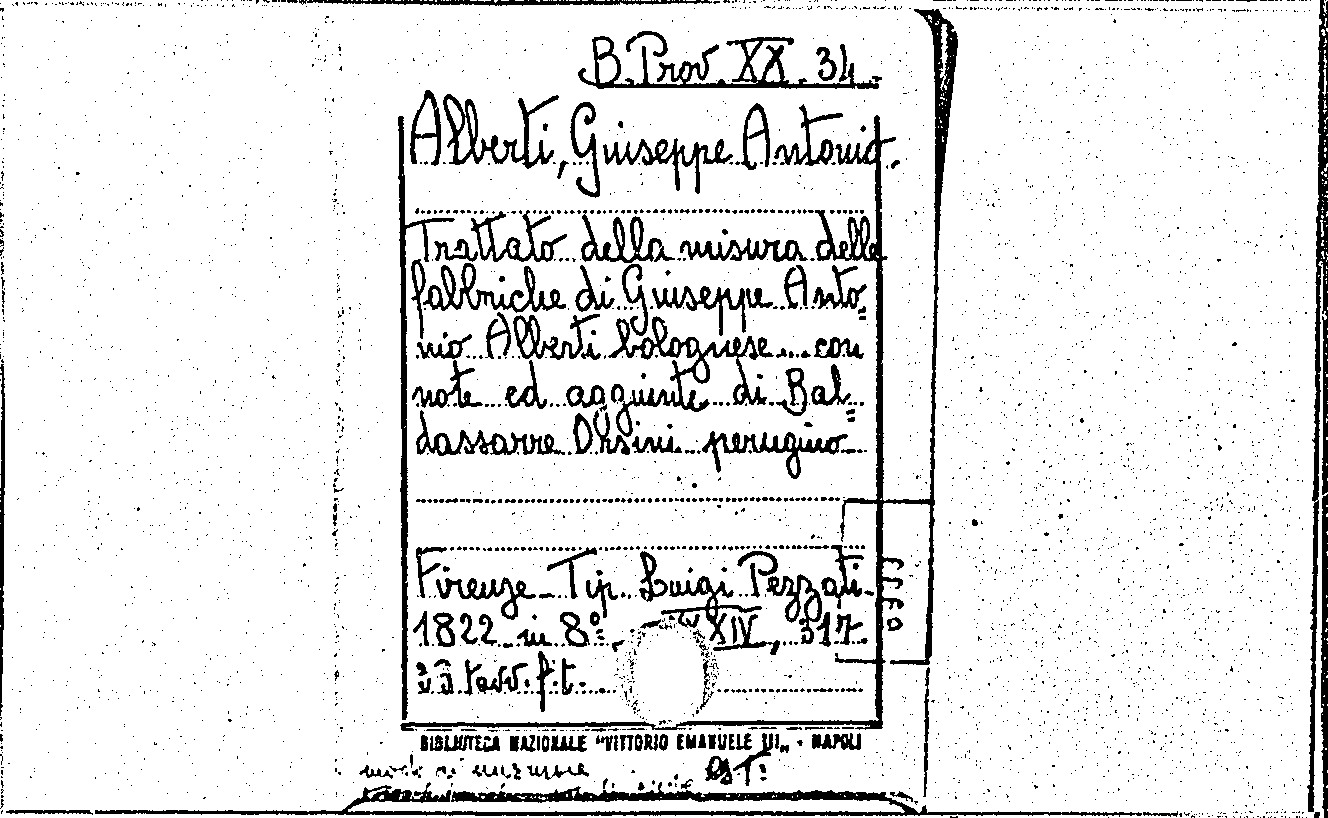 B. Prov. XX. 34.
Alberti, Giuseppe Antonio.
Trattato della misura delle
fabbriche di Giuseppe Anto=
nio Alberti bolognese... con
note ed aggiunte di Bal=
dassarre Orsini perugino
Firenze - Tip. Luigi Pezzati -
1822 in 8º, XXIV, 317.
tavv. f.t.
BIBLIOTECA NAZIONALE "VITTORIO EMANUELE III" - NAPOLI